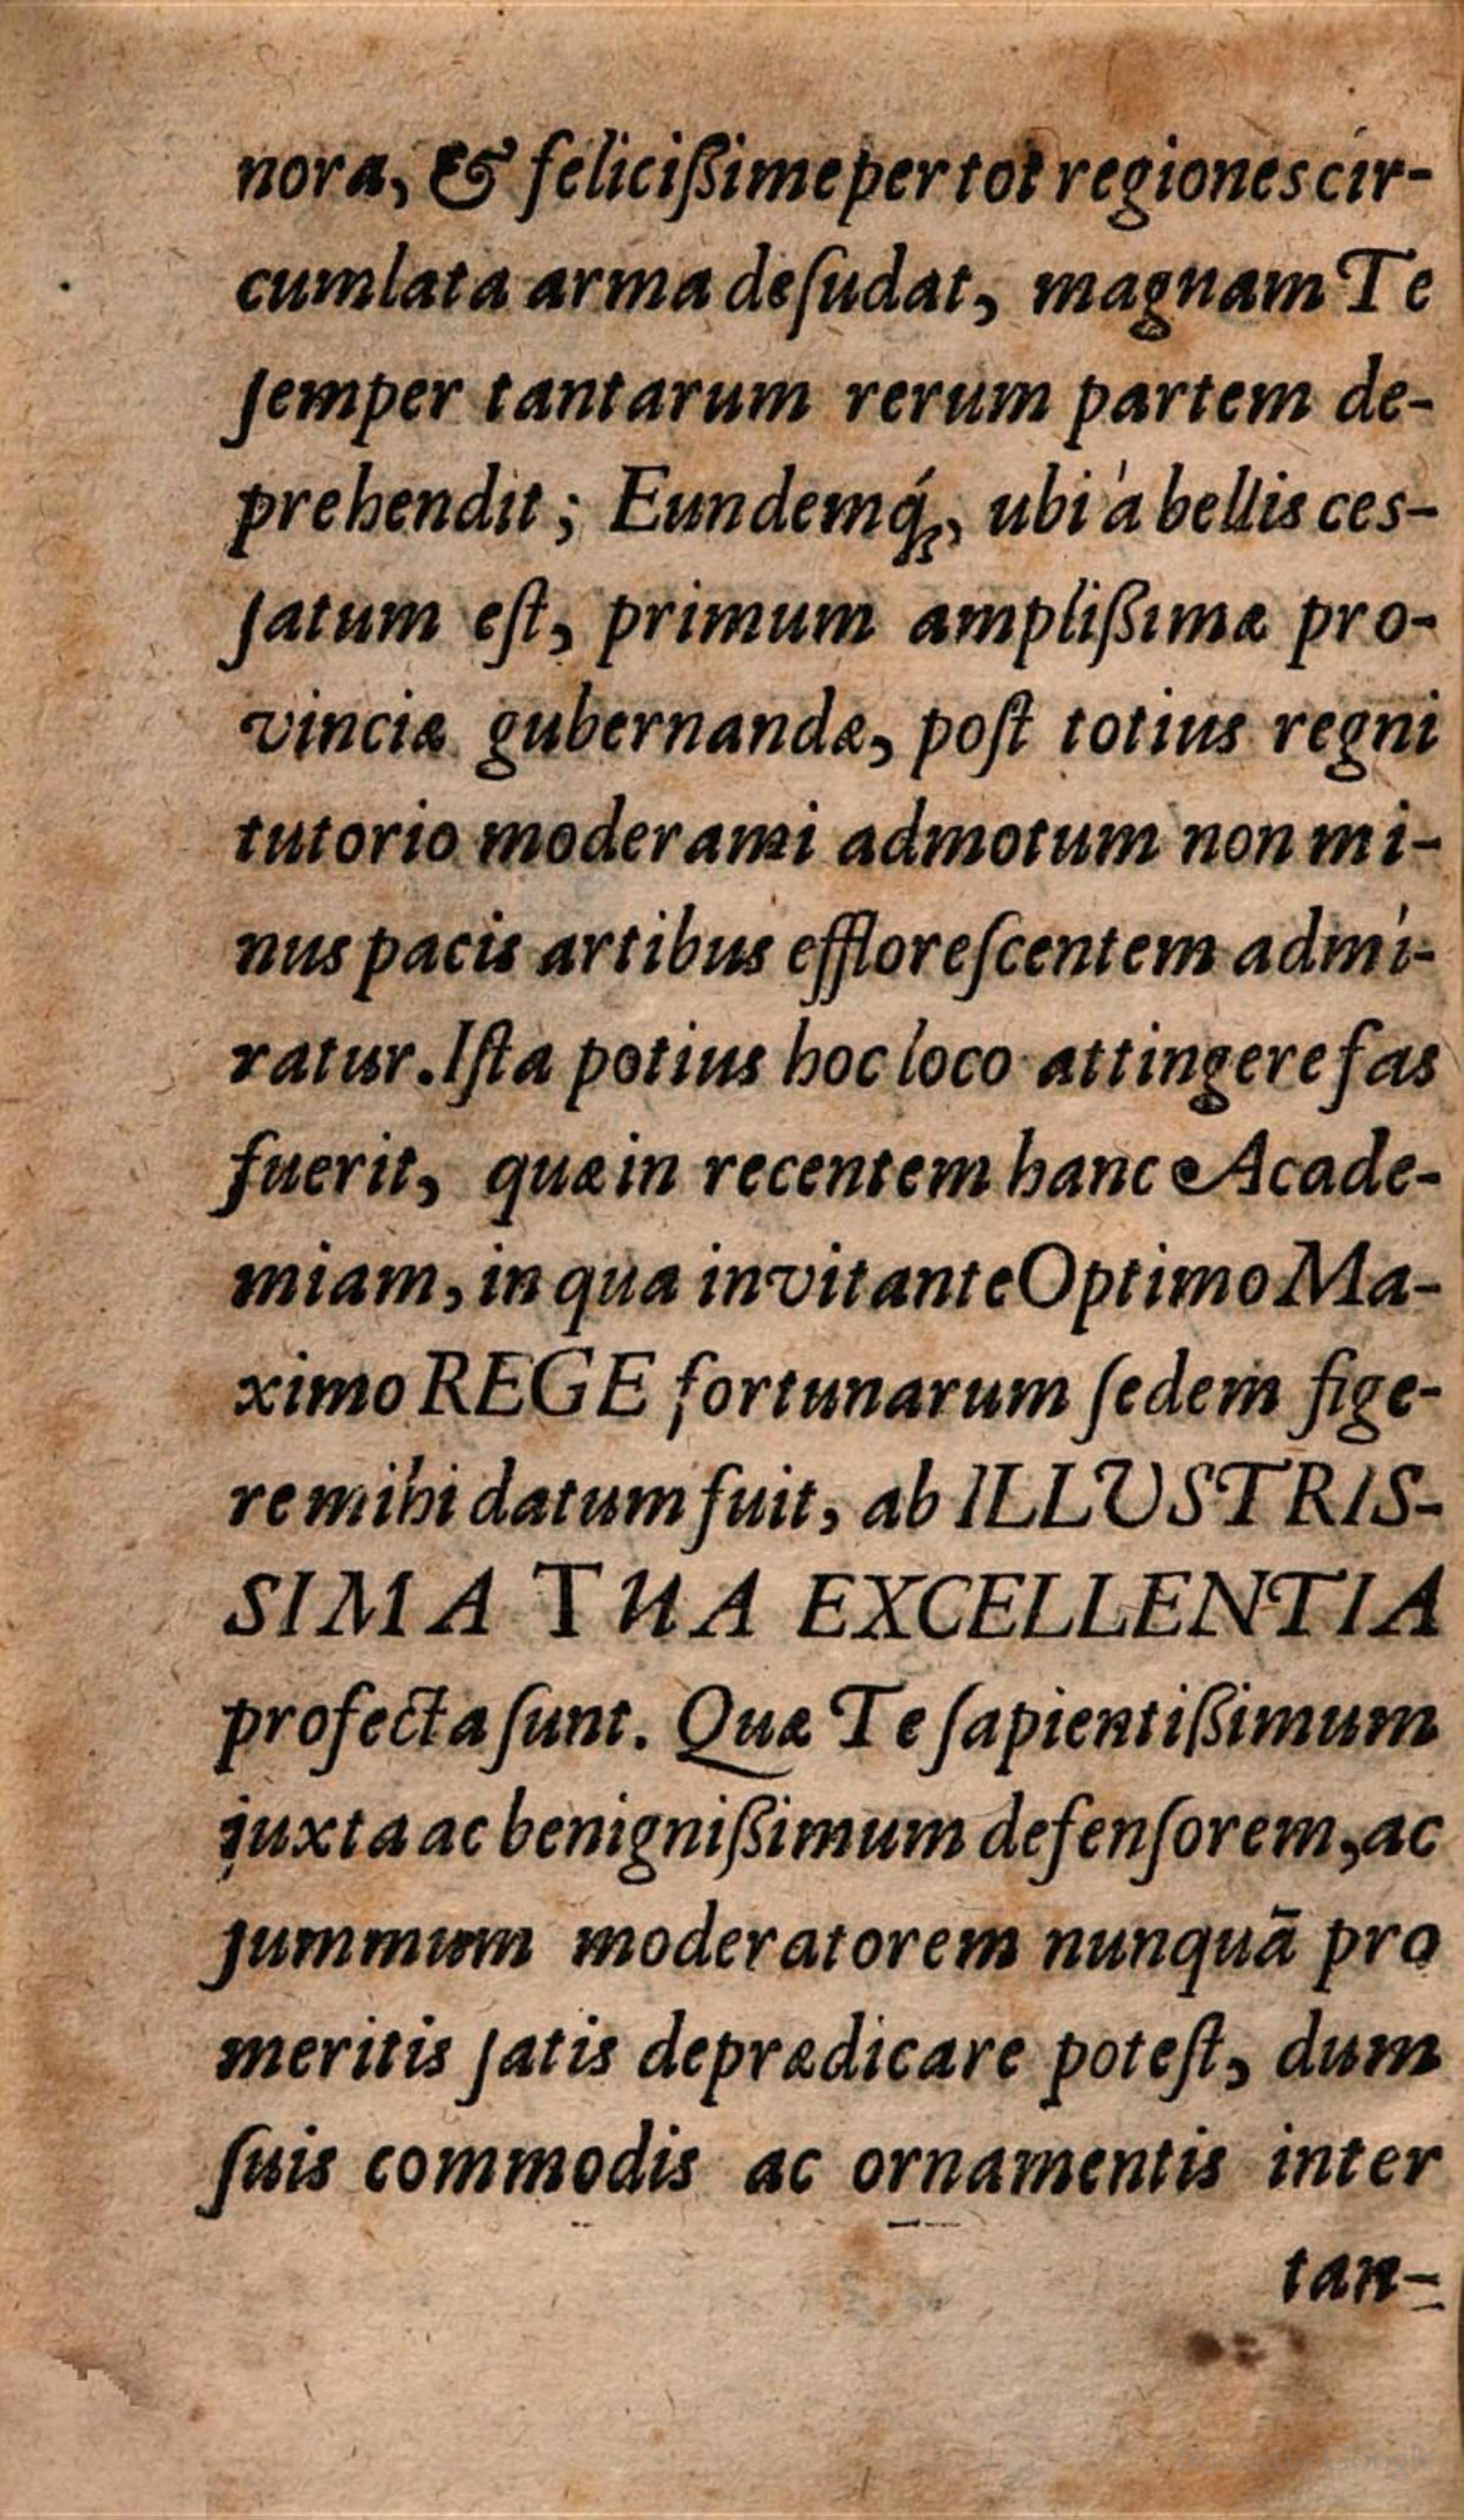 nora, & feliciſſime per tot regiones cir-
cumlata arma deſudat, magnam Te
ſemper tantarum rerum partem de-
prehendit; Eundemq́;, ubi à bellis ces-
ſatum eſt, primum ampliſſimæ pro-
vinciæ gubernandæ, poſt totius regni
tutorio moderami admotum non mi-
nus pacis artibus effloreſcentem admi-
ratur. Iſta potius hoc loco attingere fas
fuerit, quæ in recentem hanc Acade-
miam, in qua invitante Optimo Ma-
ximo REGE fortunarum ſedem fige-
re mihi datum fuit, ab ILLUSTRIS-
SIMA TUA EXCELLENTIA
profecta ſunt. Quæ Te ſapientiſſimum
juxta ac benigniſſimum defenſorem, ac
ſummum moderatorem nunquā pro
meritis ſatis deprædicare poteſt, dum
ſuis commodis ac ornamentis inter
tan-